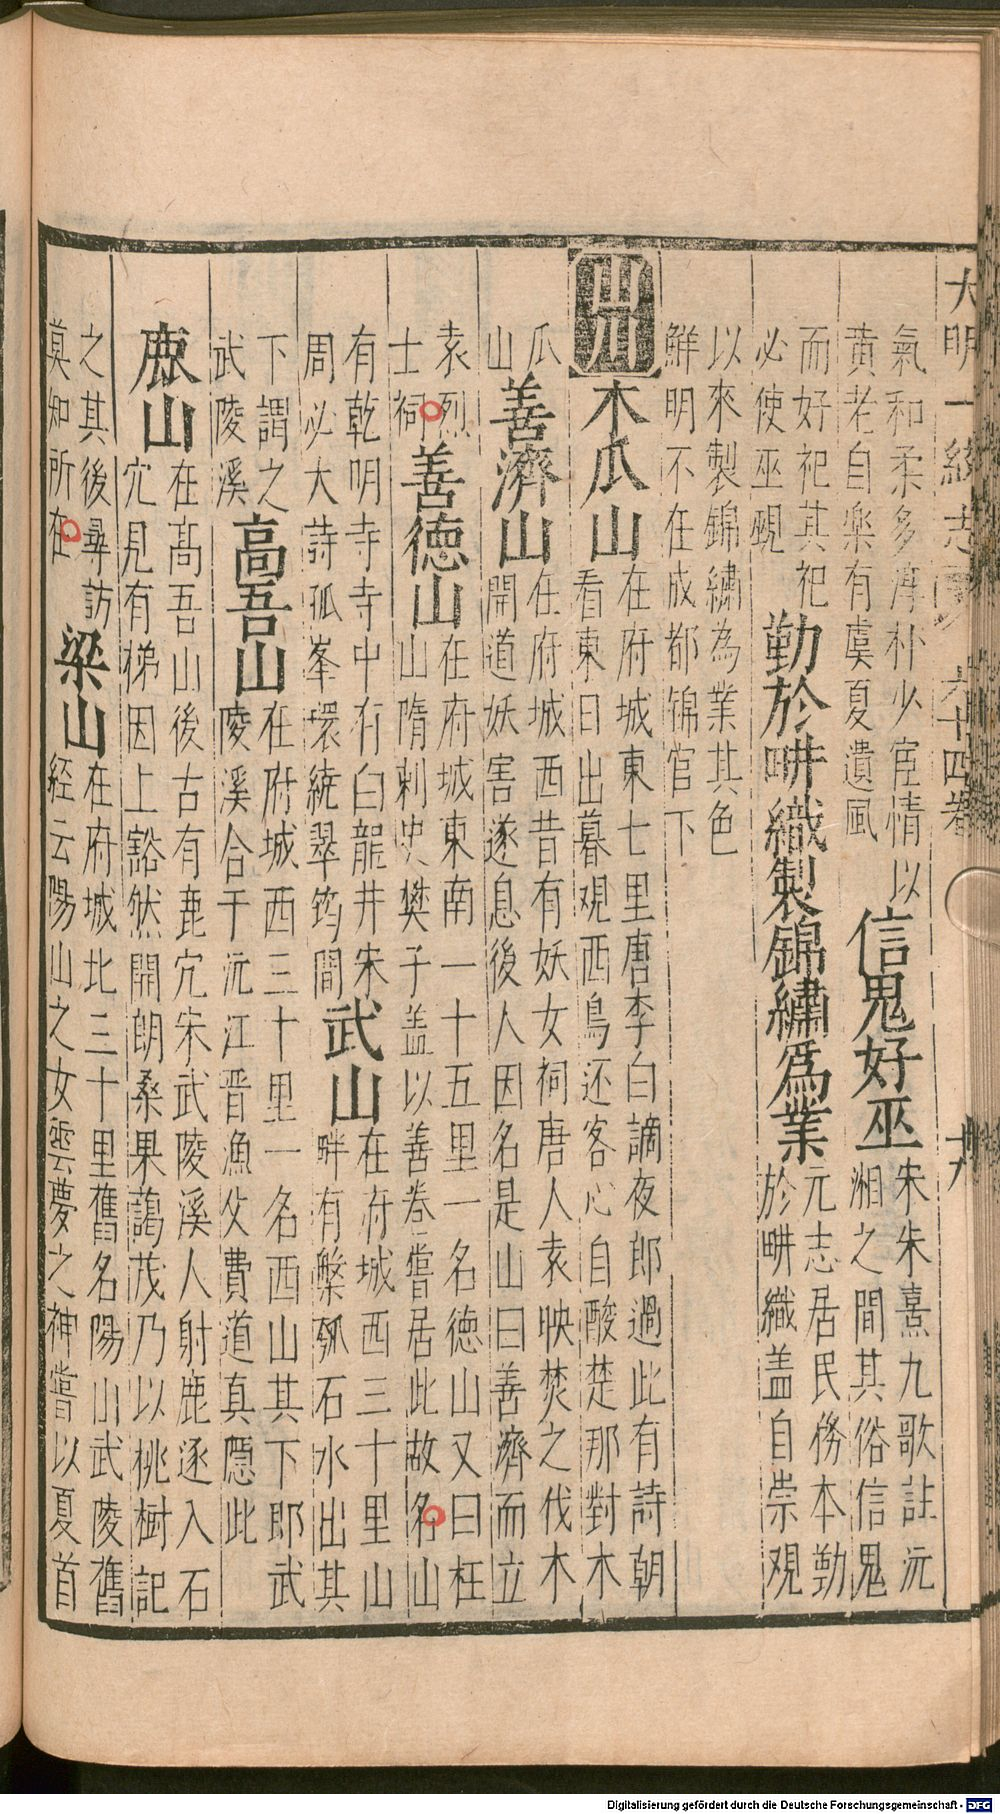 大明一統志 六十四卷 十九
氣和柔多淳朴少宦情以
黄老自樂有虞夏遺風
信鬼好巫
宋朱熹九歌註沅
湘之間其俗信鬼
而好祀其祀
必使巫覡
勤於畊織製錦繡爲業
元志居民務本勤
於畊織盖自崇观
以來製錦繡為業其色
鮮明不在成都錦官下
山川
木瓜山
在府城東七里唐李白謫夜郎過此有詩朝
看東日出暮观西鳥还客心自酸楚那對木
瓜
山
善濟山
在府城西昔有妖女祠唐人袁映焚之伐木
開道妖害遂息後人因名是山曰善濟而立
袁烈
士祠
善德山
在府城東南一十五里一名德山又曰枉
山隋刺史樊子盖以善卷嘗居此故名山
有乾明寺寺中有白龍井宋
周必大詩孤峯環繞翠筠間
武山
在府城西三十里山
畔有槃瓠石水出其
下謂之
武陵溪
高吾山
在府城西三十里一名西山其下即武
陵溪合于沅江晋漁父費道真隱此
鹿山
在髙吾山後古有鹿穴宋武陵溪人射鹿逐入石
穴見有梯因上豁然開朗桑果藹茂乃以桃樹記
之其後尋訪
莫知所在
梁山
在府城北三十里舊名陽山武陵舊
経云陽山之女雲夢之神嘗以夏首
Digitalisierung gefördert durch die Deutsche Forschungsgemeinschaft - DFG